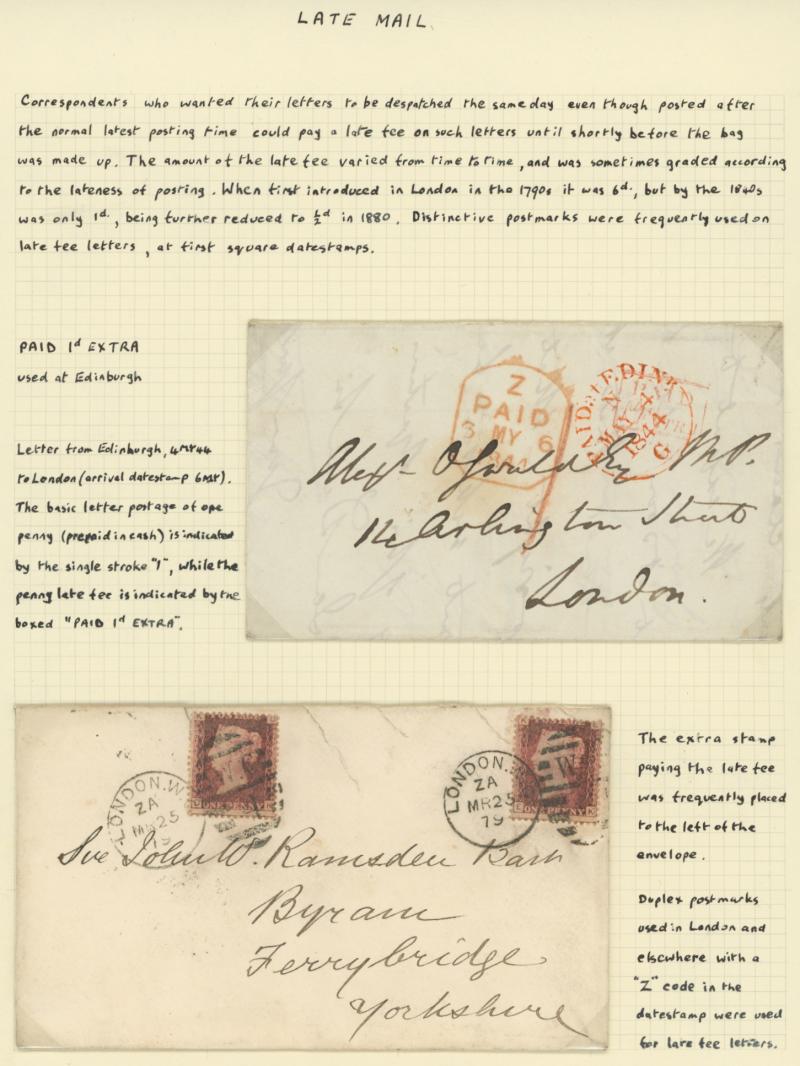 LATE MAIL
Correspondents who wanted their letters to be despatched the same day even though posted after
the normal latest posting time could pay a late fee on such letters until shortly before the bag
was made up. The amount of the late fee varied from time to time, and was sometimes graded according
to the lateness of posting. When first introduced in London in the 1790s it was 6d., but by the 1840s
was only 1d., being further reduced to ½d in 1880. Distinctive postmarks were frequently used on
late fee letters, at first square datestamps.
PAID 1d EXTRA
used at Edinburgh
Letter from Edinburgh, 4MY44
to London (arrival datestamp 6MY).
The basic letter postage of one
penny (prepaid in cash) is indicated
by the single stroke "1", while the
penny late fee is indicated by the
boxed "PAID 1d EXTRA".
Z
PAID
MY 6
1844
G
Alexr Oswald Esq M.P.
Arlington Street
London.
LONDON.W
ZA
MR25
79
LONDON.W
ZA
MR25
79
W
Sir John W. Ramsden Bart
Byram
Ferrybridge
Yorkshire
The extra stamp
paying the late fee
was frequently placed
to the left of the
envelope.
Duplex postmarks
used in London and
elsewhere with a
"Z" code in the
datestamp were used
for late fee letters.